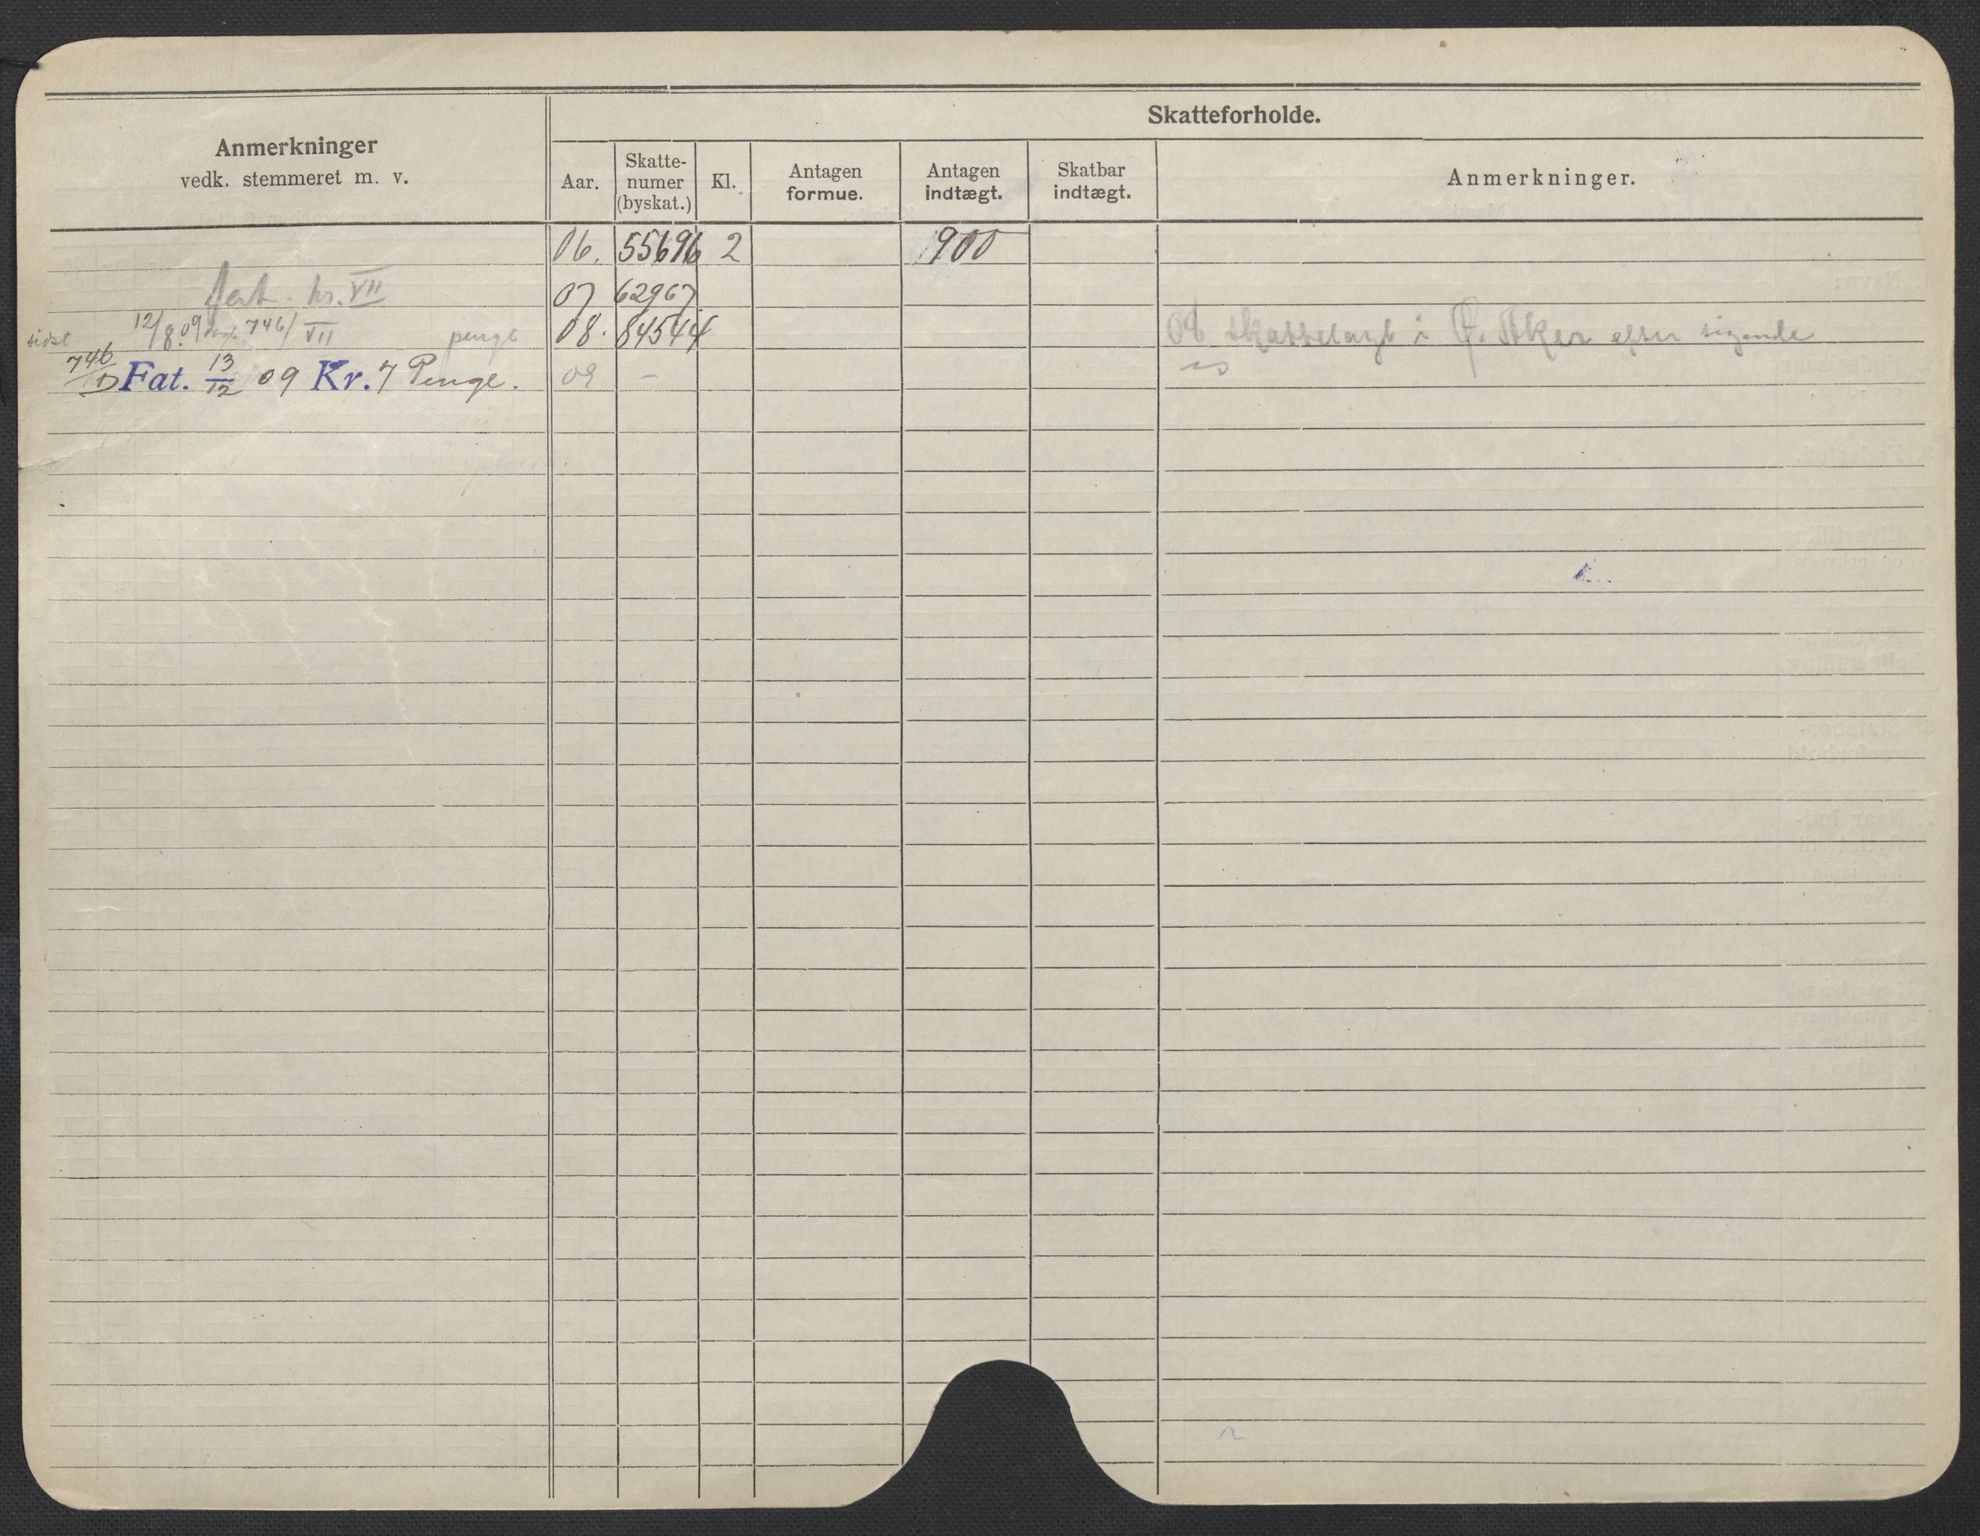 Skatteforholde.
Anmerkninger
vedk. stemmeret m. v.
Aar.
Skatte-
numer
(byskat.)
Kl.
Antagen
formue.
Antagen
indtægt.
Skatbar
indtægt.
Anmerkninger.
06. 55696 2 900
Fat. kr. VII
07 62967
sidst 12/8.09 746/VII penge
08. 84544 08 skattelagt i Ø. Aker efter sigende
746/D Fat. 13/12 09 Kr. 7 Penge.
09 –